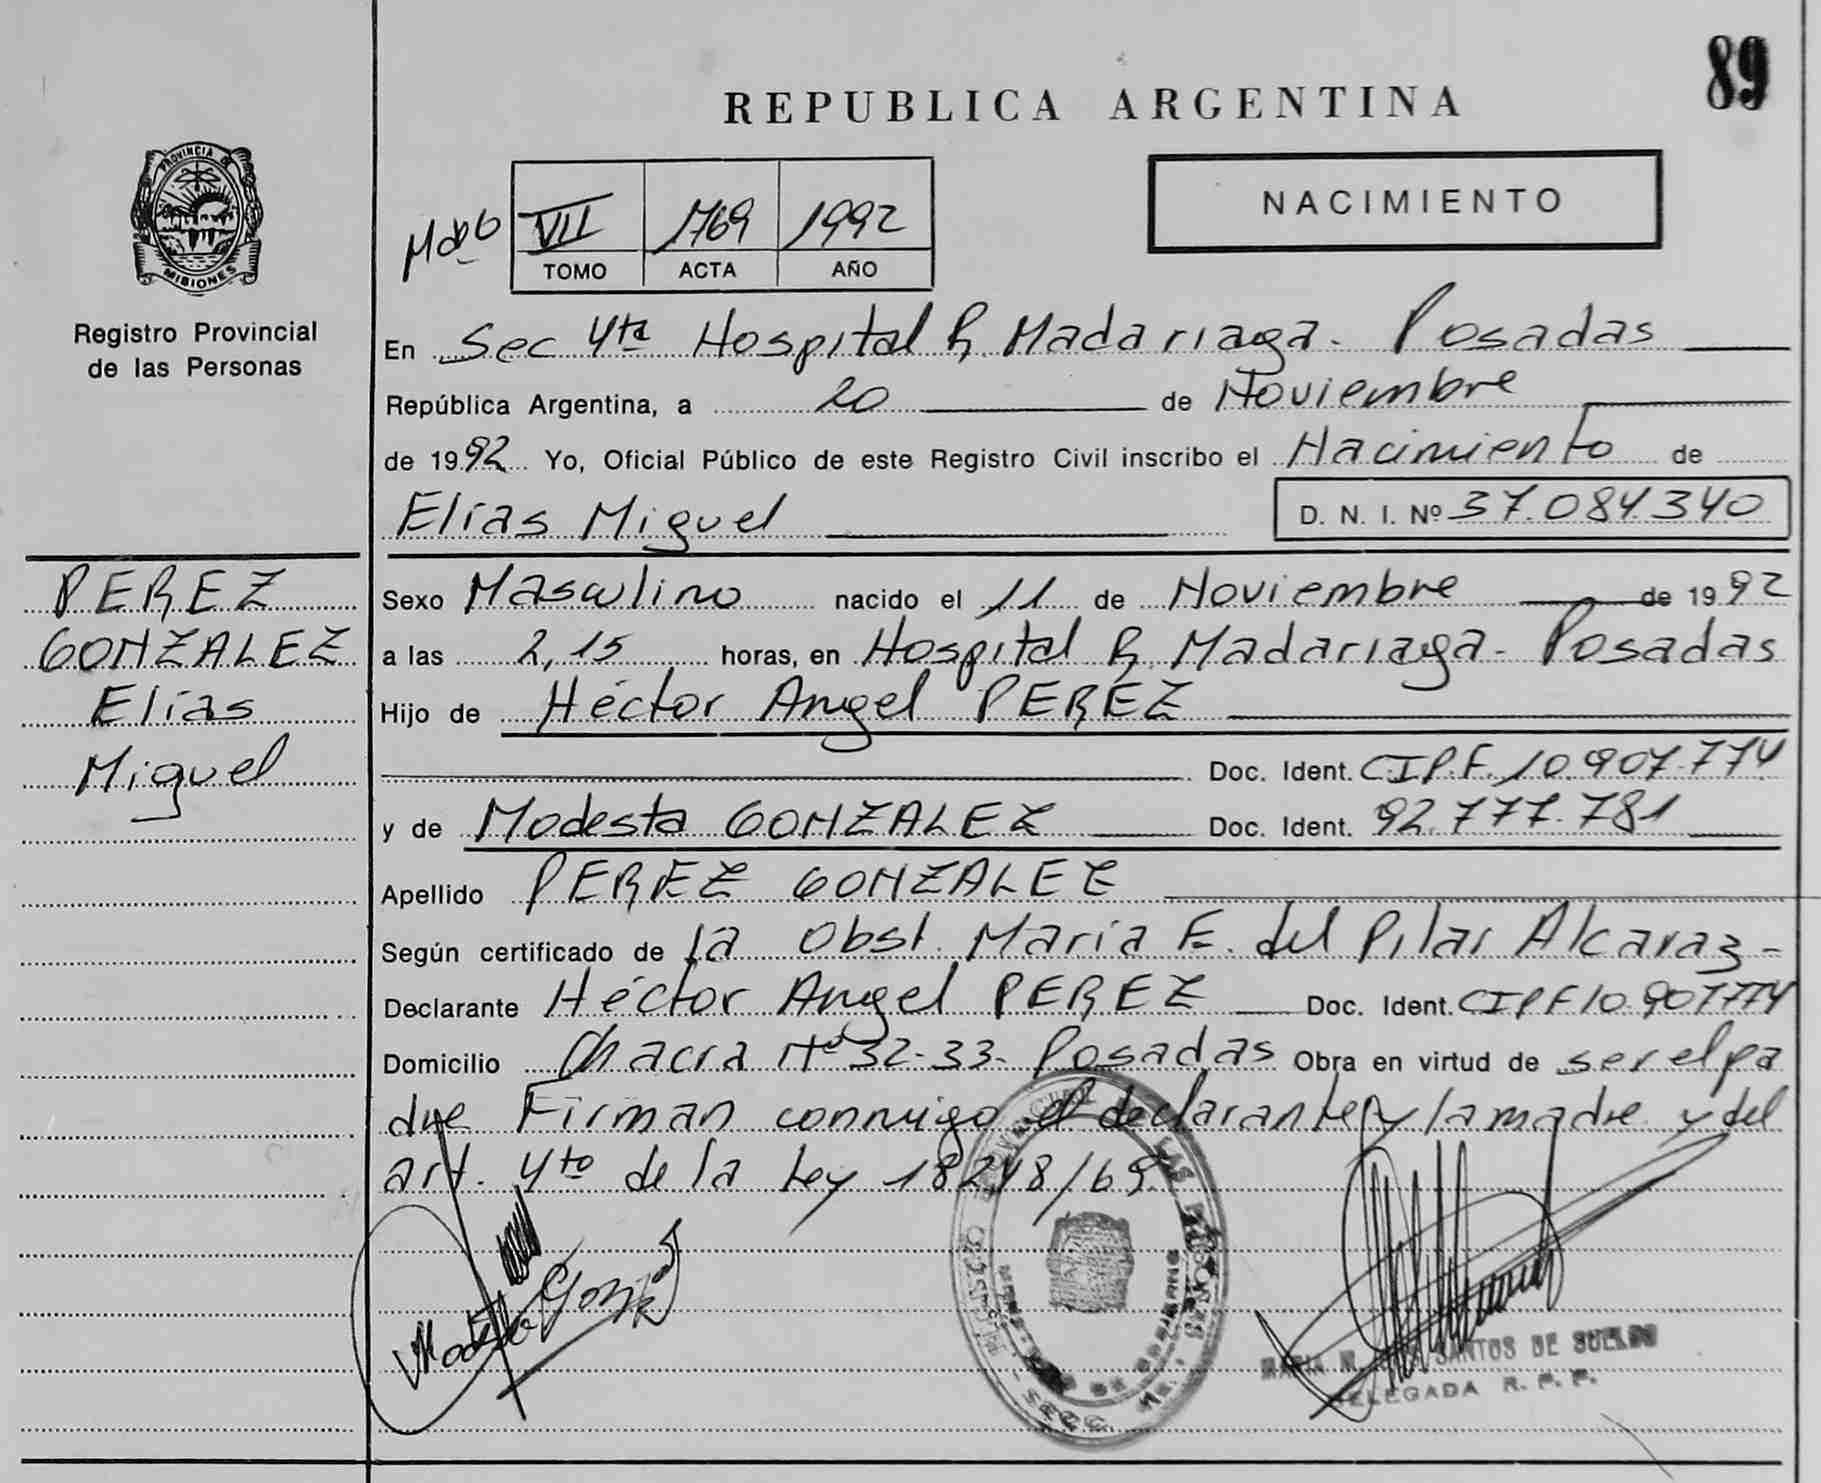 89
REPUBLICA ARGENTINA
NACIMIENTO
VII 1769 1992
TOMO ACTA AÑO
PROVINCIA DE
MISIONES
Registro Provincial
de las Personas
En Sec 4ta Hospital R. Madariaga - Posadas
República Argentina, a 20 de Noviembre
de 1992 Yo, Oficial Público de este Registro Civil inscribo el Nacimiento de
Elías Miguel D. N. I. Nº 37.084.340
PEREZ
GONZALEZ
Elías
Miguel
Sexo Masculino nacido el 11 de Noviembre de 1992
a las 2,15 horas, en Hospital R. Madariaga - Posadas
Hijo de Héctor Angel PEREZ
Doc. Ident. CIPF. 10.907.774
y de Modesta GONZALEZ Doc. Ident. 92.777.781
Apellido PEREZ GONZALEZ
Según certificado de la Obst. María E. del Pilar Alcaraz -
Declarante Héctor Angel PEREZ Doc. Ident. CIPF 10.907774
Domicilio Chacra Nº 32-33- Posadas Obra en virtud de ser el pa
dre Firman conmigo el declarante y la madre y del
art. 4to de la Ley 18248/69.
Modesta
SANTOS DE
DELEGADA R. P. P.